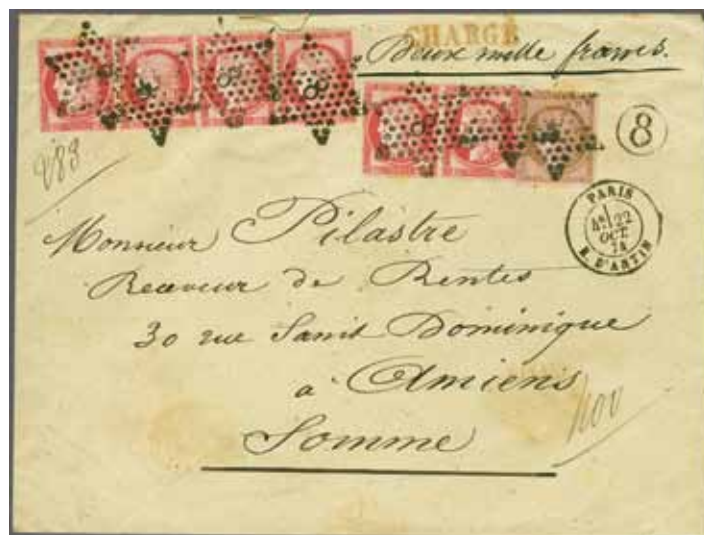 CHARGÉ
Deux mille francs.
8
8
8
8
283
PARIS
4E 22
OCT.
74
R. D'ANTIN
Monsieur Pilastre
Receveur de Rentes
30 rue Saint Dominique
a Amiens
Somme